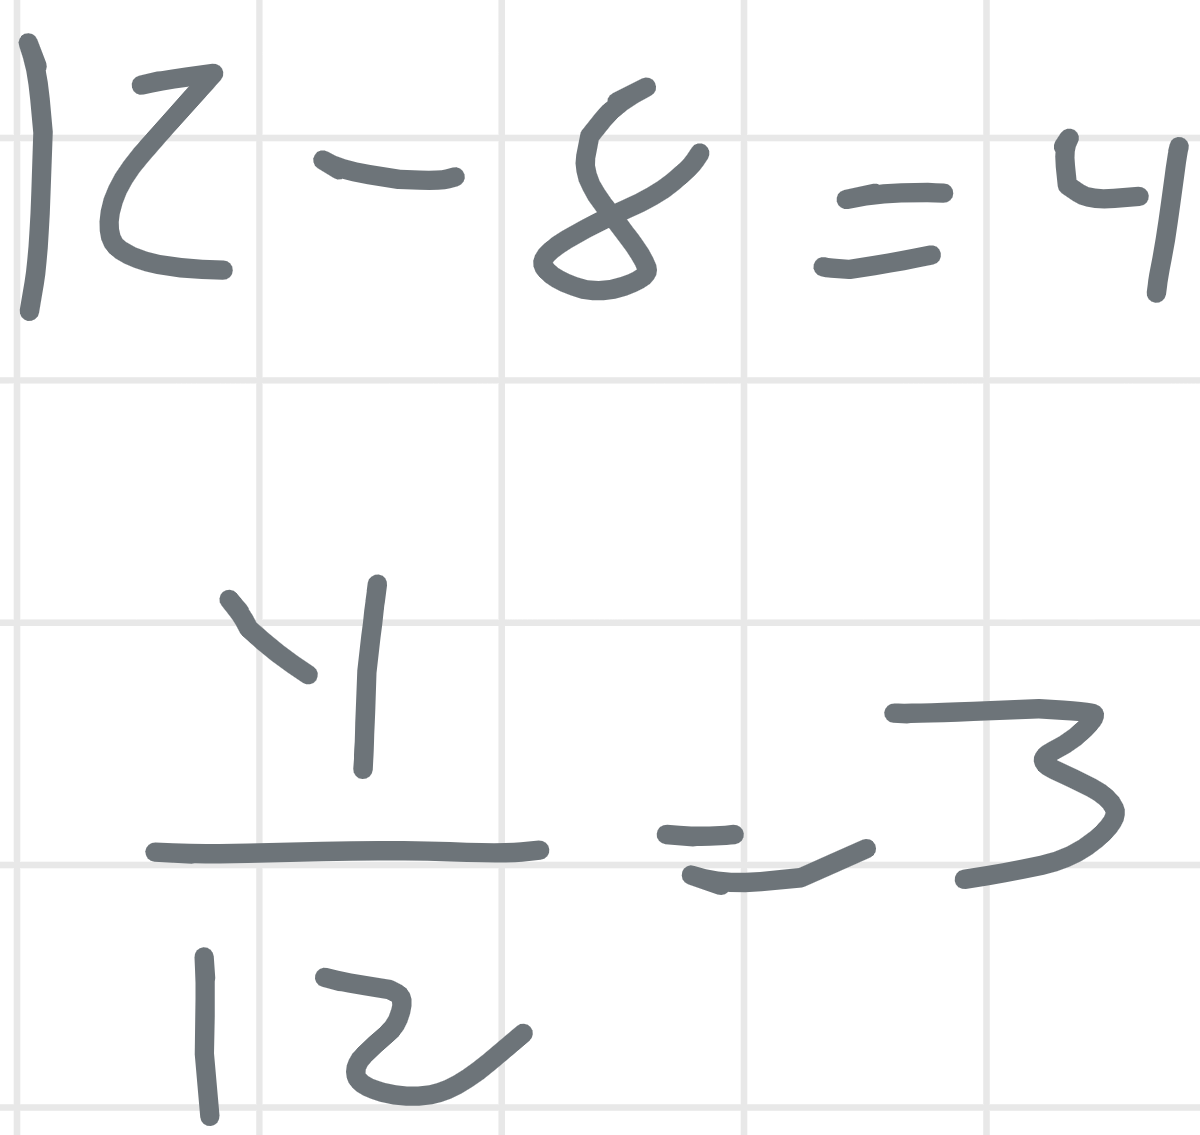 12 - 8 = 4
4
12
= 3